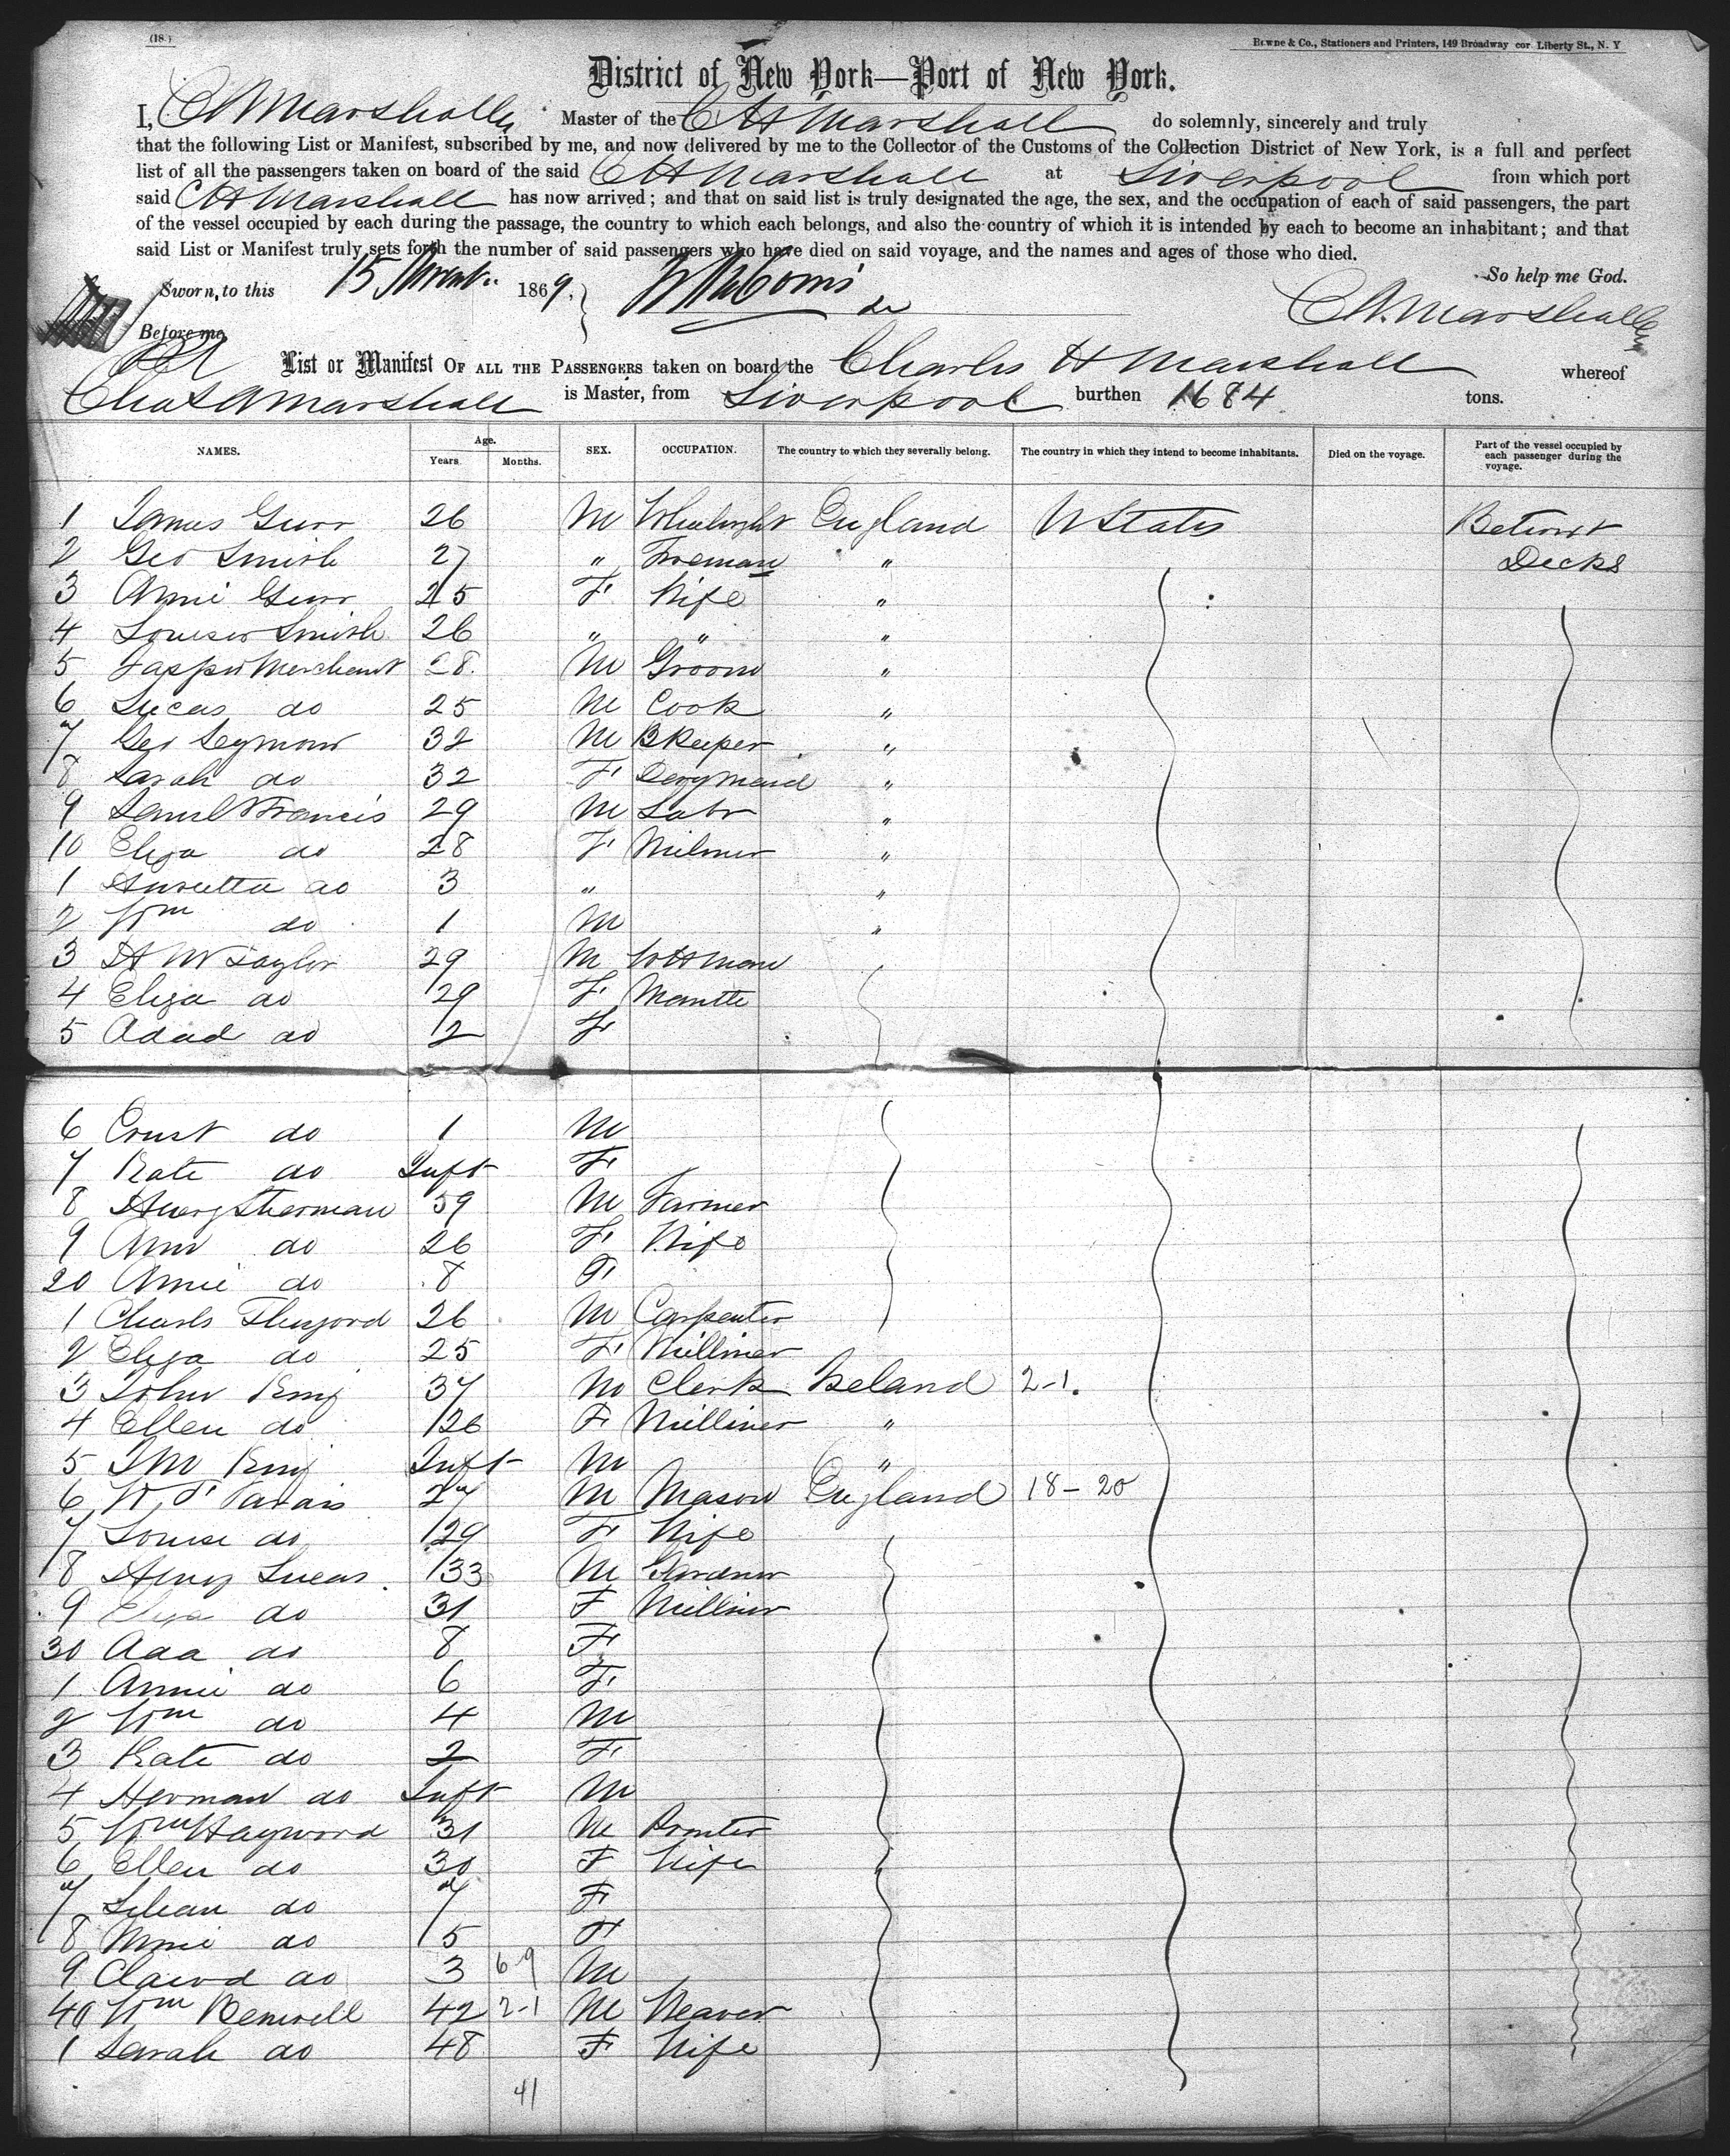 (18 )
Bowne & Co., Stationers and Printers, 149 Broadway cor Liberty St., N. Y
District of New York—Port of New York.
I, C A Marshall Master of the C H Marshall do solemnly, sincerely and truly
that the following List or Manifest, subscribed by me, and now delivered by me to the Collector of the Customs of the Collection District of New York, is a full and perfect
list of all the passengers taken on board of the said C H Marshall at Liverpool from which port
said C H Marshall has now arrived; and that on said list is truly designated the age, the sex, and the occupation of each of said passengers, the part
of the vessel occupied by each during the passage, the country to which each belongs, and also the country of which it is intended by each to become an inhabitant; and that
said List or Manifest truly sets forth the number of said passengers who have died on said voyage, and the names and ages of those who died.
So help me God.
Sworn, to this 15 1869,
C A. Marshall
Before me,
List or Manifest OF ALL THE PASSENGERS taken on board the Charles H Marshall whereof
Chas A Marshall is Master, from Liverpool burthen 1684 tons.
NAMES. Age. Years. Months. SEX. OCCUPATION. The country to which they severally belong. The country in which they intend to become inhabitants. Died on the voyage. Part of the vessel occupied by each passenger during the voyage.
1 James Gurr 26 M Wheelwright England U States Betwixt
2 Geo Smith 27 " Foreman " Decks
3 Annie Gurr 25 F Wife "
4 Louisa Smith 26 " " "
5 Jasper Merchant 28 M Groom "
6 Lucas do 25 M Cook "
7 Geo Seymour 32 M B Keeper "
8 Sarah do 32 F Derymaid "
9 Saml Francis 29 M Labr "
10 Eliza do 28 F Milner "
1 do 3 " "
2 Wm do 1 M "
3 H W Taylor 29 M W H Man
4 Eliza do 29 F Mantle
5 do 2 F
6 Ernst do 1 M
7 Kate do Inft F
8 Henry Sherman 39 M Farmer
9 Ann do 26 F Wife
20 Annie do 8 F
1 Charles 26 M Carpenter
2 Eliza do 25 F Milliner
3 John King 37 M Clerk Ireland 2-1.
4 Ellen do 26 F Milliner "
5 King Inft M "
6 27 M Mason England 18-20
7 Louise do 29 F Wife
8 Henry Lucas 33 M Gardner
9 Eliza do 31 F Milliner
30 Ada do 8 F
1 Annie do 6 F
2 Wm do 4 M
3 Kate do 2 F
4 Herman do Inft M
5 Wm Hayword 31 M
6 Ellen do 30 F Wife
7 Lilian do 7 F
8 Minie do 5 F
9 Clawd do 3 6-9 M
40 Wm Benwell 42 2-1 M Weaver
1 Sarah do 48 F Wife
41